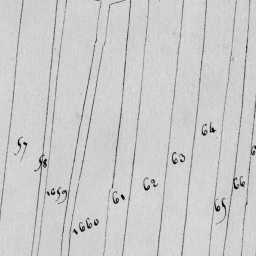 57
58
1659
1660
61
62
63
64
65
66